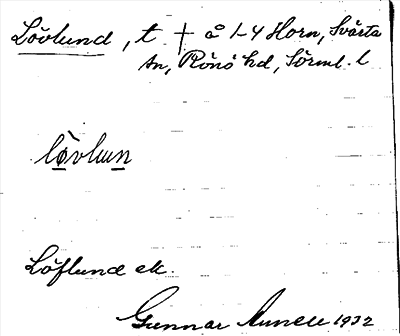 Lövlund, t. † å 1-4 Horn, Svärta
sn, Rönö hd, Sörml. l
lövlun
Löflund ek.
Gunnar 1932